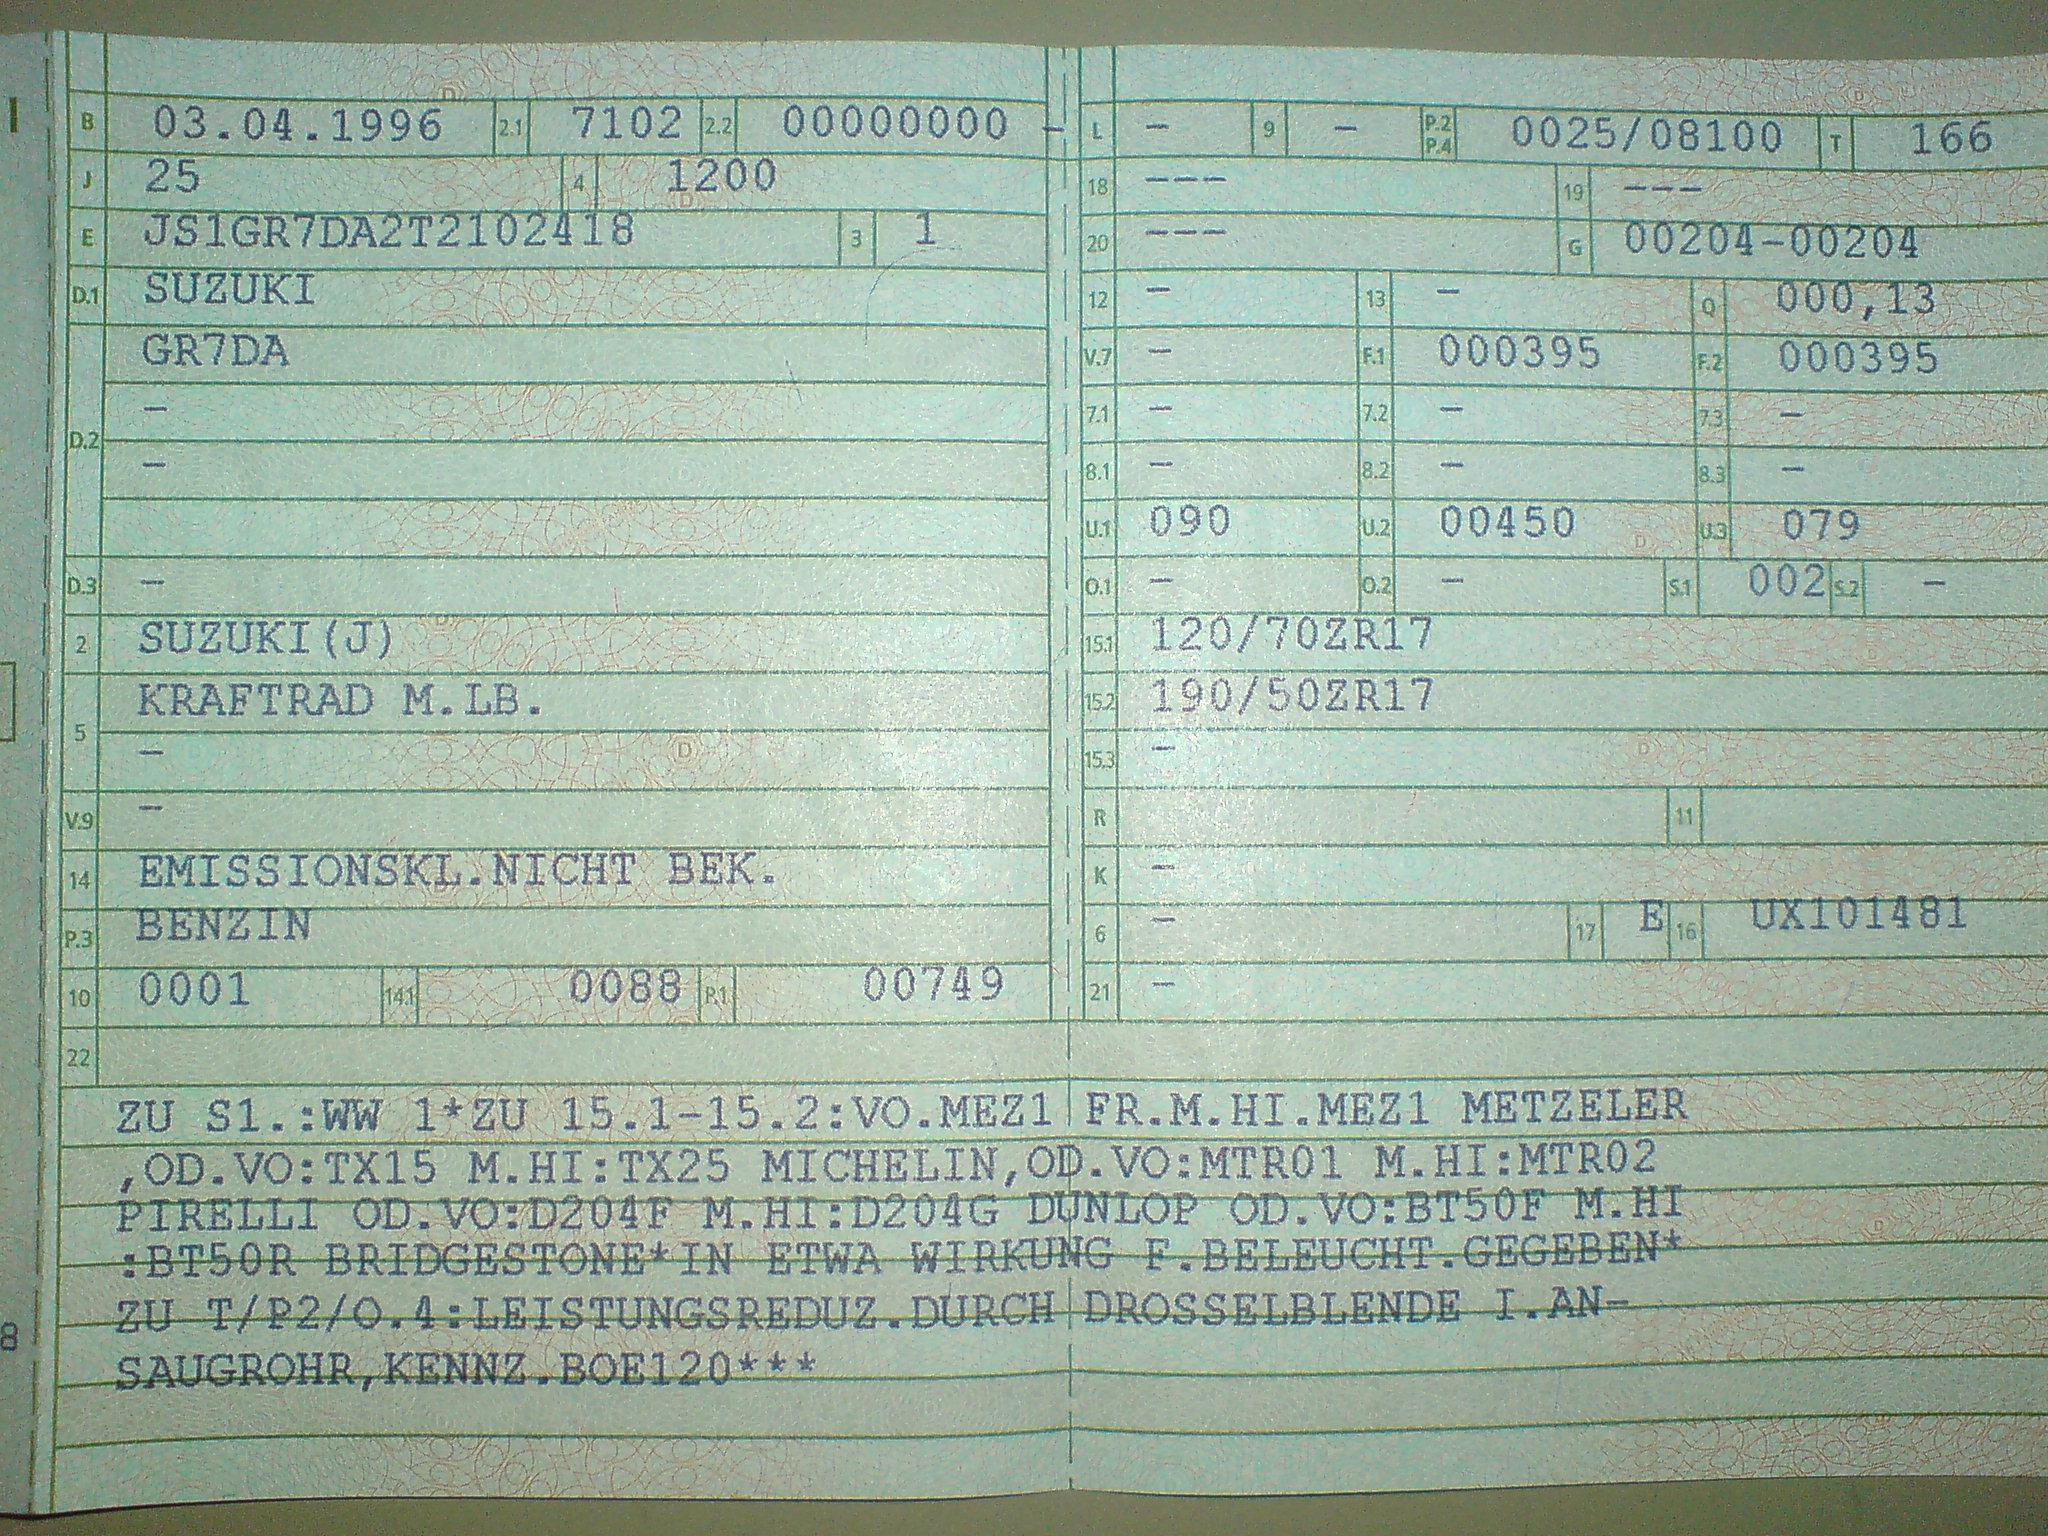 B 03.04.1996 2.1 7102 2.2 00000000 –
J 25 4 1200
E JS1GR7DA2T2102418 3 1
D.1 SUZUKI
GR7DA
–
D.2
–
D.3 –
2 SUZUKI(J)
KRAFTRAD M.LB.
5
–
V.9 –
14 EMISSIONSKL.NICHT BEK.
P.3 BENZIN
10 0001 14.1 0088 P.1 00749
L – 9 – P.2 P.4 0025/08100 T 166
18 --- 19 ---
20 --- G 00204-00204
12 – 13 – Q 000,13
V.7 – F.1 000395 F.2 000395
7.1 – 7.2 – 7.3 –
8.1 – 8.2 – 8.3 –
U.1 090 U.2 00450 U.3 079
O.1 – O.2 – S.1 002 S.2 –
15.1 120/70ZR17
15.2 190/50ZR17
15.3 –
R 11
K –
6 – 17 E 16 UX101481
21 –
22
ZU S1.:WW 1*ZU 15.1-15.2:VO.MEZ1 FR.M.HI.MEZ1 METZELER
,OD.VO:TX15 M.HI:TX25 MICHELIN,OD.VO:MTR01 M.HI:MTR02
PIRELLI OD.VO:D204F M.HI:D204G DUNLOP OD.VO:BT50F M.HI
:BT50R BRIDGESTONE*IN ETWA WIRKUNG F.BELEUCHT.GEGEBEN*
ZU T/P2/O.4:LEISTUNGSREDUZ.DURCH DROSSELBLENDE I.AN-
8
SAUGROHR,KENNZ.BOE120***